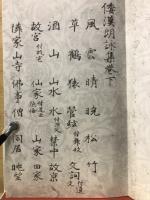 倭漢朗詠集巻下
風 雲 晴 暁 松 竹
草 鶴 猿 管絃付舞妓 文詞付遺文
酒 山 山水 水付漁父 禁中 故京
故宮付故宅 仙家付道士隠倫 山家 田家
隣家 山寺 佛事 僧 閑居 眺望